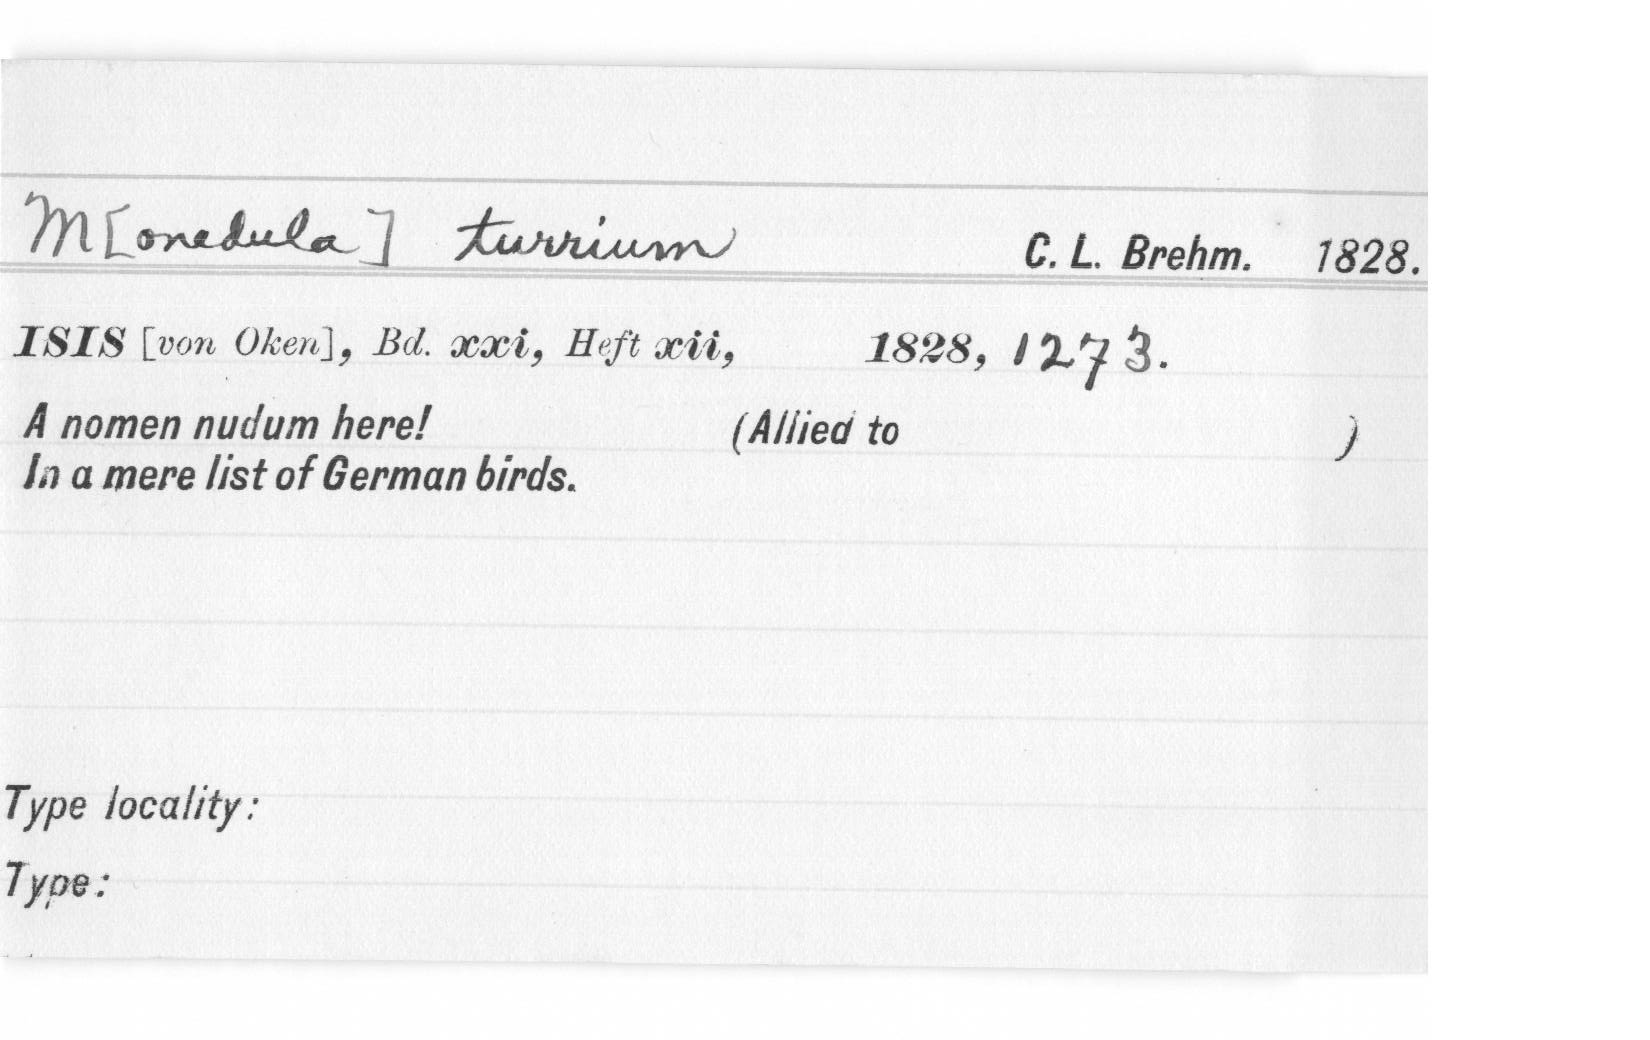 M[onedula] turrium C. L. Brehm. 1828.
ISIS [von Oken], Bd. xxi, Heft xii, 1828, 1273.
A nomen nudum here! (Allied to )
In a mere list of German birds.
Type locality:
Type: